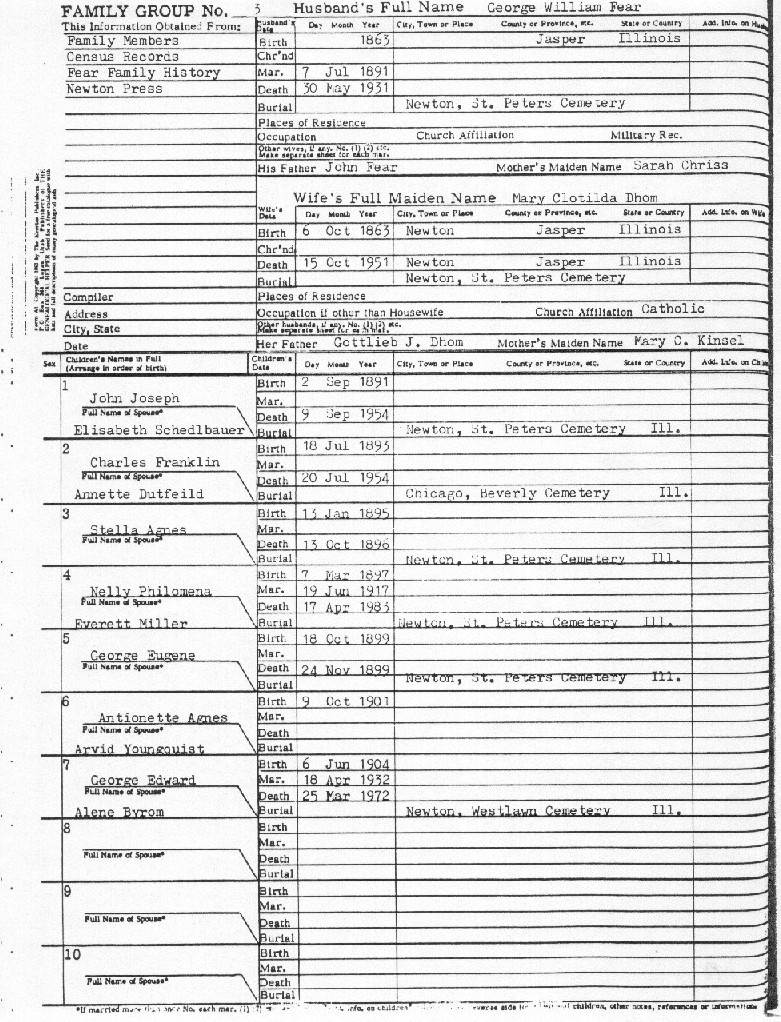 FAMILY GROUP No. 3 Husband's Full Name George William Fear
This Information Obtained From:
Family Members
Census Records
Fear Family History
Newton Press
Husband's Data Day Month Year City, Town or Place County or Province, etc. State or Country Add. Info. on
Birth 1863 Jasper Illinois
Chr'nd
Mar. 7 Jul 1891
Death 30 May 1931
Burial Newton, St. Peters Cemetery
Places of Residence
Occupation Church Affiliation Military Rec.
Other wives, if any. No. (1) (2) etc.
Make separate sheet for each mar.
His Father John Fear Mother's Maiden Name Sarah Chriss
Wife's Full Maiden Name Mary Clotilda Dhom
Wife's Data Day Month Year City, Town or Place County or Province, etc. State or Country Add. Info. on Wife
Birth 6 Oct 1863 Newton Jasper Illinois
Chr'nd
Death 15 Oct 1951 Newton Jasper Illinois
Burial Newton, St. Peters Cemetery
Compiler Places of Residence
Address Occupation if other than Housewife Church Affiliation Catholic
City, State Other husbands, if any. No. (1) (2) etc.
Make separate sheet for each mar.
Date Her Father Gottlieb J. Dhom Mother's Maiden Name Mary C. Kinsel
Sex Children's Names in Full (Arrange in order of birth) Children's Data Day Month Year City, Town or Place County or Province, etc. State or Country Add. Info. on
1 Birth 2 Sep 1891
John Joseph Mar.
Full Name of Spouse* Death 9 Sep 1954
Elisabeth Schedlbauer Burial Newton, St. Peters Cemetery Ill.
2 Birth 18 Jul 1893
Charles Franklin Mar.
Full Name of Spouse* Death 20 Jul 1954
Annette Dutfeild Burial Chicago, Beverly Cemetery Ill.
3 Birth 13 Jan 1895
Stella Agnes Mar.
Full Name of Spouse* Death 13 Oct 1896
Burial Newton, St. Peters Cemetery Ill.
4 Birth 7 Mar 1897
Nelly Philomena Mar. 19 Jun 1917
Full Name of Spouse* Death 17 Apr 1983
Everett Miller Burial Newton, St. Peters Cemetery Ill.
5 Birth 18 Oct 1899
George Eugene Mar.
Full Name of Spouse* Death 24 Nov 1899
Burial Newton, St. Peters Cemetery Ill.
6 Birth 9 Oct 1901
Antionette Agnes Mar.
Full Name of Spouse* Death
Arvid Youngquist Burial
7 Birth 6 Jun 1904
George Edward Mar. 18 Apr 1932
Full Name of Spouse* Death 25 Mar 1972
Alene Byrom Burial Newton, Westlawn Cemetery Ill.
8 Birth
Mar.
Full Name of Spouse* Death
Burial
9 Birth
Mar.
Full Name of Spouse* Death
Burial
10 Birth
Mar.
Full Name of Spouse* Death
Burial
*If married more than once No. each mar. (1) info. on children" reverse side for children, other notes, references or information